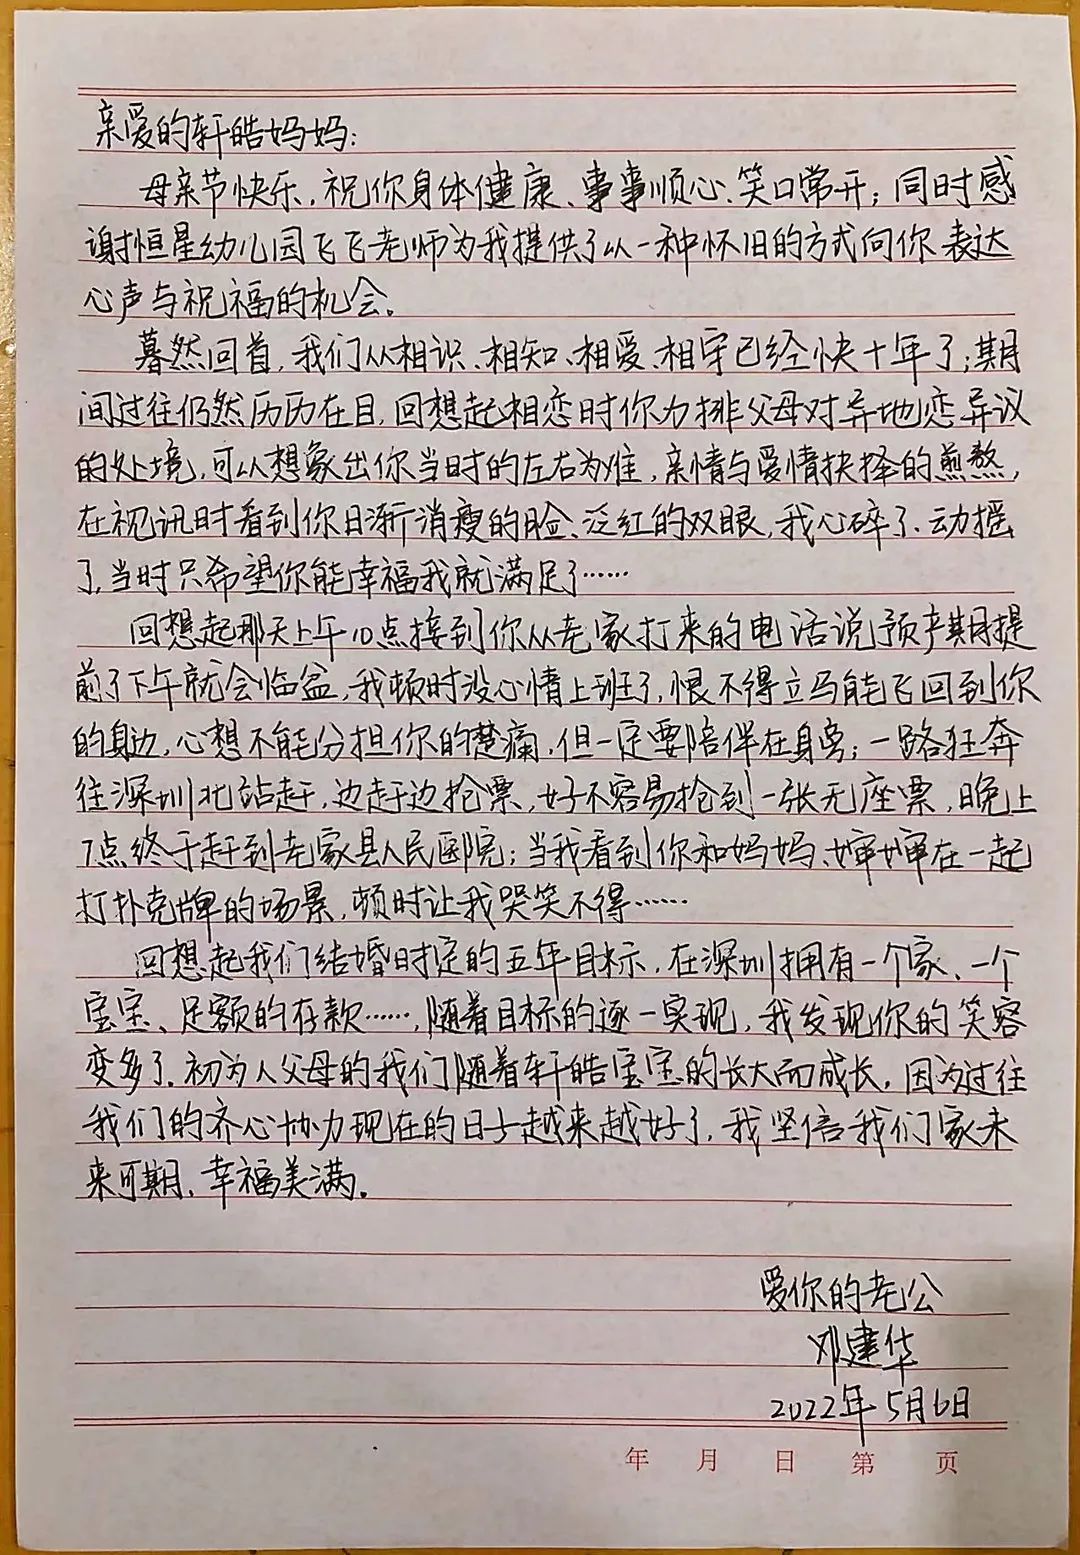 亲爱的轩皓妈妈:
母亲节快乐,祝你身体健康、事事顺心、笑口常开;同时感
谢恒星幼儿园飞飞老师为我提供了以一种怀旧的方式向你表达
心声与祝福的机会。
蓦然回首,我们从相识、相知、相爱、相守已经快十年了;期
间过往仍然历历在目,回想起相恋时你力排父母对异地恋异议
的处境,可以想象出你当时的左右为难,亲情与爱情抉择的煎熬,
在视讯时看到你日渐消瘦的脸、泛红的双眼,我心碎了、动摇
了,当时只希望你能幸福我就满足了……
回想起那天上午10点接到你从老家打来的电话说预产期提
前了下午就会临盆,我顿时没心情上班了,恨不得立马能飞回到你
的身边,心想不能分担你的楚痛,但一定要陪伴在身旁;一路狂奔
往深圳北站赶,边赶边抢票,好不容易抢到一张无座票,晚上
7点终于赶到老家县人民医院;当我看到你和妈妈、婶婶在一起
打扑克牌的场景,顿时让我哭笑不得……
回想起我们结婚时定的五年目标,在深圳拥有一个家、一个
宝宝、足额的存款……,随着目标的逐一实现,我发现你的笑容
变多了,初为人父母的我们随着轩皓宝宝的长大而成长,因为过往
我们的齐心协力现在的日子越来越好了,我坚信我们家未
来可期,幸福美满。
爱你的老公
邓建华
2022年5月6日
年 月 日 第 页